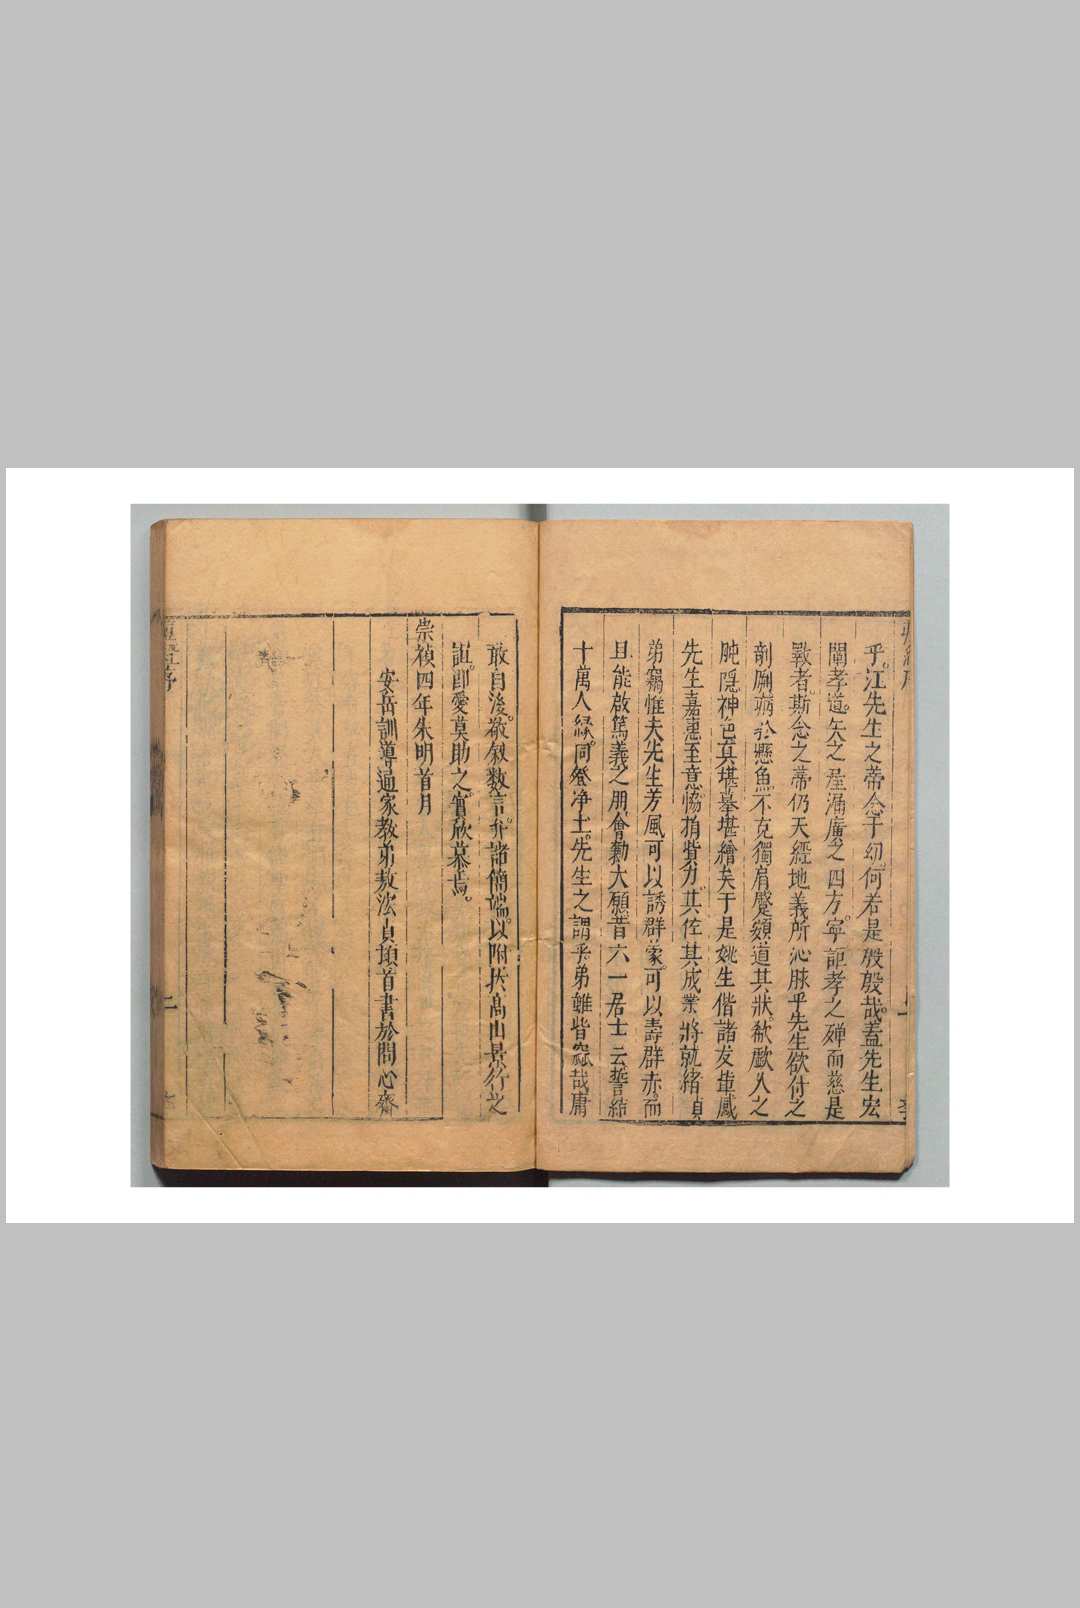 乎江先生之蒂念于幼何若是殷殷哉蓋先生宏
闡孝道矢之 漏廣之四方寧 孝之殫而慈是
斁者斯念之蒂仍天經地義所沁脥乎先生欲付之
剞劂病於懸魚不克獨肩蹙頞道其狀欷歔入之
肫隱神色真堪摹堪繪矣于是姚生偕諸友 感
先生嘉惠至意恊捐貲力其佐其成業將就緒貞
弟竊惟夫先生芳風可以誘群蒙可以壽群赤而
且能啟篤義之朋會勷大願昔六一居士云誓結
十萬人緣同登凈土先生之謂乎弟雖呰窳哉庸
敢自後敬敘數言弁諸簡端以附於高山景行之
誼卽愛莫助之實欣慕焉
崇禎四年朱明首月
安岳訓導通家教弟敖浤貞頓首書於問心齋
序
二